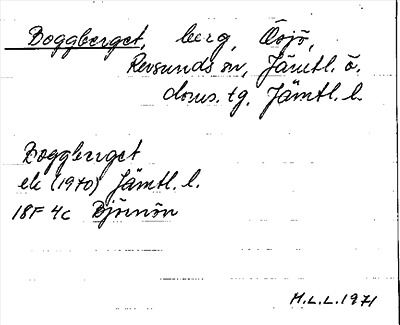 Boggberget, berg, Ösjö,
Revsunds sn, Jämtl. ö.
doms. tg. Jämtl. l.
Boggberget
ek (1970) Jämtl. l.
18F 4c Björnön
M.L.L. 1971